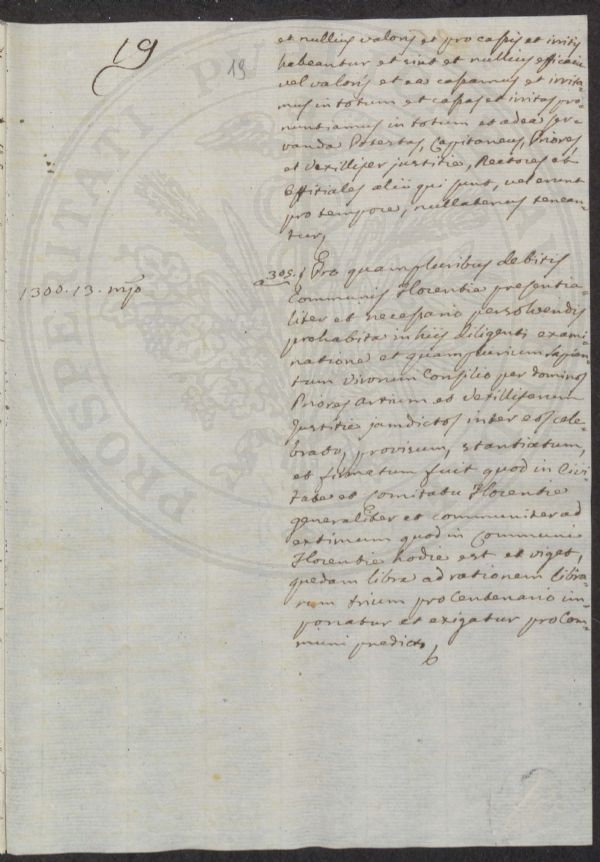 19
19
et nullius valoris et pro cassis et irritis
habeantur et sint et nullius efficacie
vel valoris et ea cassamus et irrita-
mus in totum et cassas et irritas pro-
nuntiamus in totum et ad ea ser-
vanda Potestas, Capitaneus, Priores
et Vexillifer justitie, Rectores et
Offitiales alii qui sunt, vel erunt
pro tempore, nullatenus tenean-
tur,
1300. 13. mgo
a 305. Pro quampluribus debitis
Communis Florentie presentia-
liter et necessario persolvendis
prohabita in hiis diligenti exami-
natione et quamplurium sapien-
tum Virorum Consilio per dominos
Priores Artium et Vexilliferum
Justitie jamdictos inter eos cele-
brato, provisum, stantiatum,
et firmatum fuit quod in Civi-
tate et Comitatu Florentie
generaliter et communiter ad
extimum quod in Communi
Florentie hodie est et viget,
quedam libra ad rationem libra-
rum trium pro Centenario im-
ponatur et exigatur pro Com-
muni predicto
PROSPERITATI PU